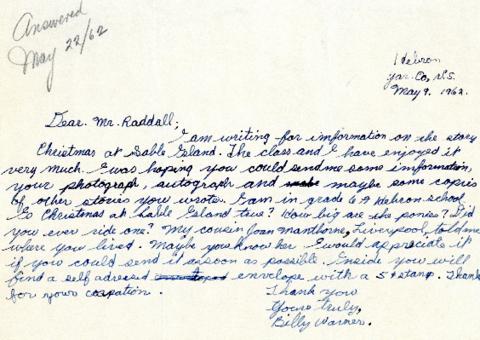 Answered
May 22/62
Hebron
Yar. Co, N.S.
May 9. 1962.
Dear. Mr. Raddall;
I am writing for imformation on the story
Christmas at Sable Island. The class and I have enjoyed it
very much. I was hoping you could send me some imformation,
your photograph, autograph and maybe some copies
of other stories you wrote. I am in grade 6 A Hebron school.
Is Christmas at Sable Island true? How big are the ponies? Did
you ever ride one? My cousin Joan Manthorne, Liverpool, told me
where you lived. Maybe you know her. I would appreciate it
if you could send it as soon as possible. Inside you will
find a self adressed envelope with a 5¢ stamp. Thanks
for your
Thank you
Yours truly,
Billy Warner.